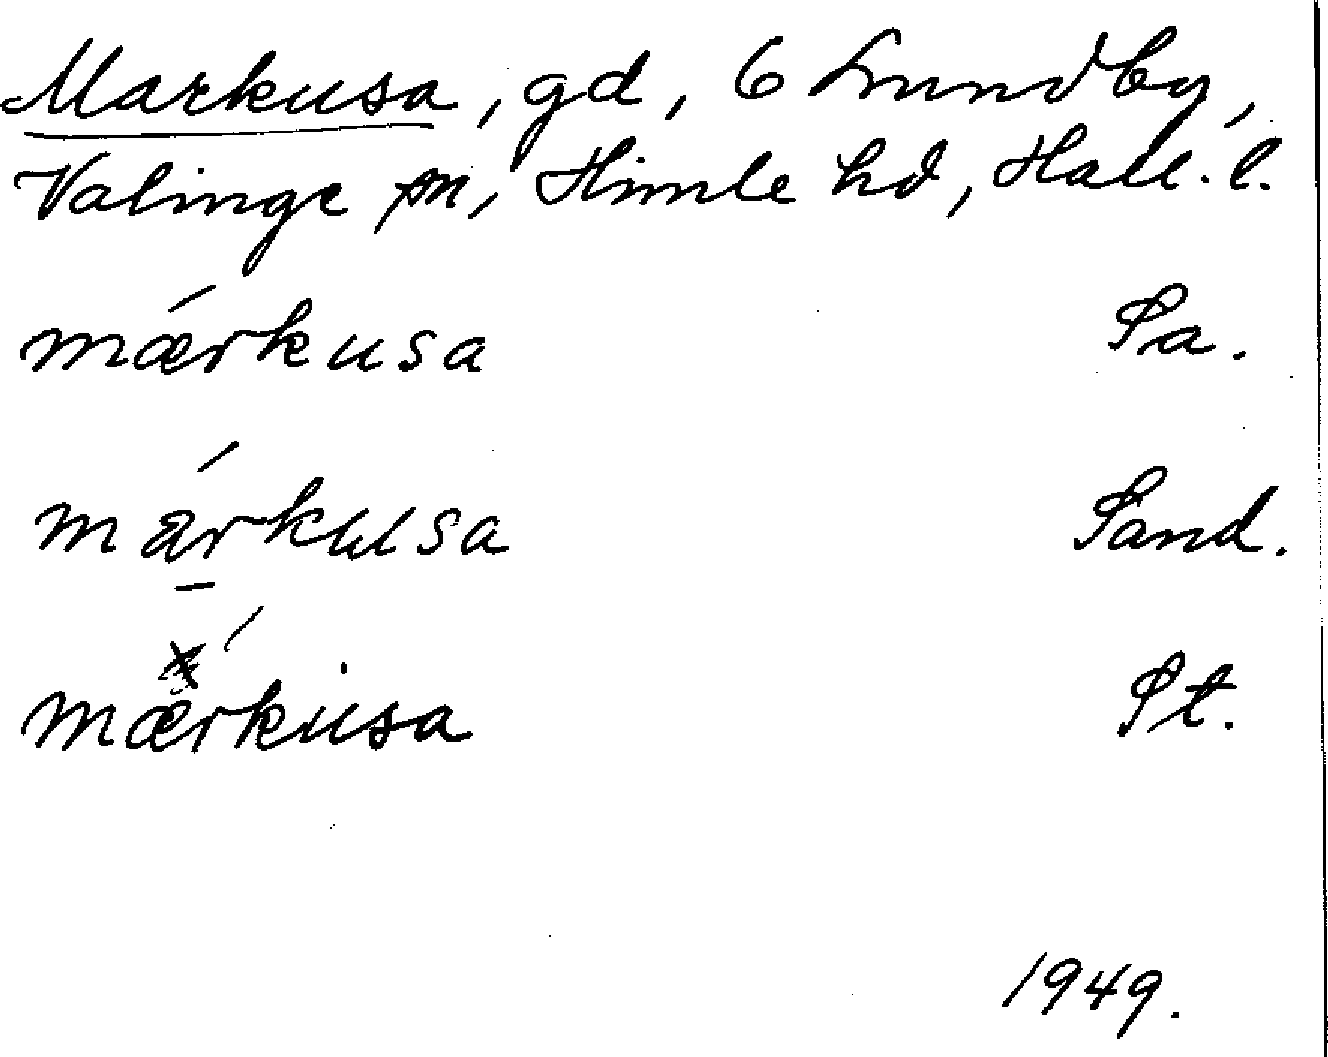 Markusa, gd, 6 Lundby,
Valinge sn, Himle hd, Hall. l.
mǽrkusa Sa.
márkusa Sand.
mǽrkusa St.
1949.